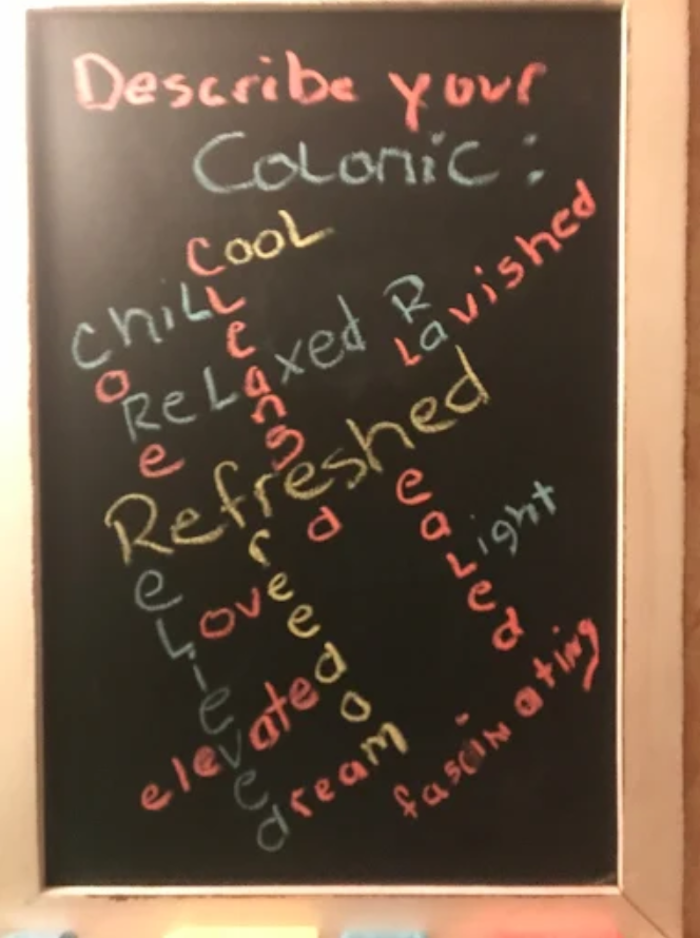 Describe your
Colonic:
Cool
Chill
Relaxed
R
Lavished
Core
Cleansed
Refreshed
Healed
Light
Relieved
freedom
Love
elevated
dream
fascinating